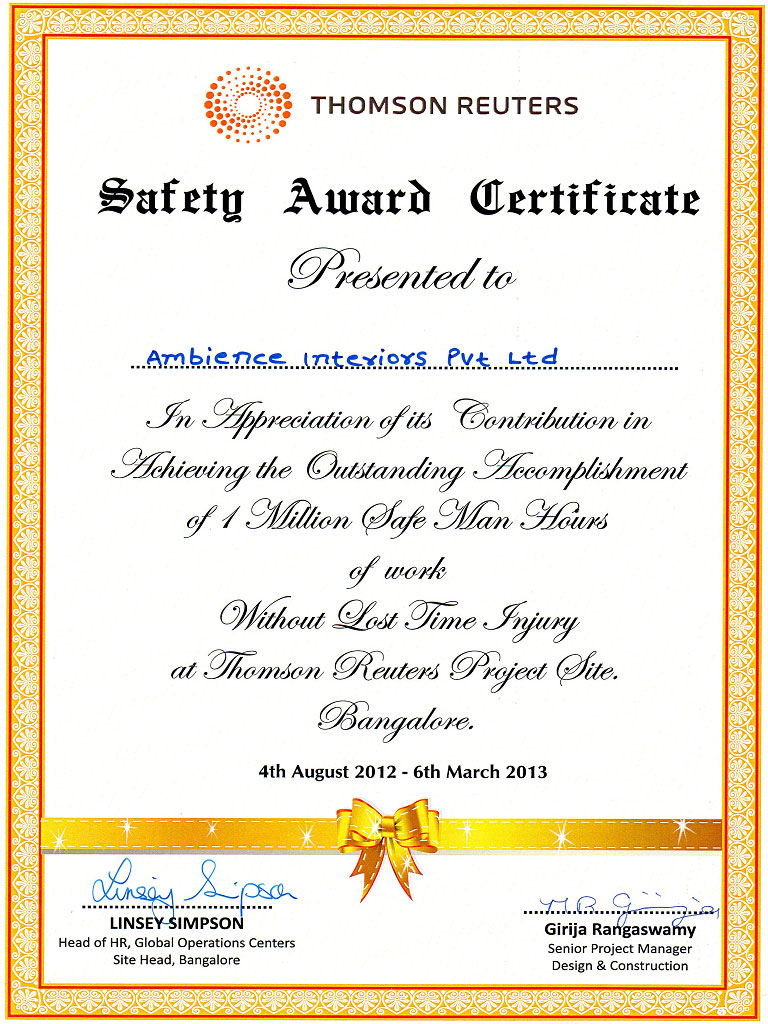 THOMSON REUTERS
Safety Award Certificate
Presented to
Ambience Interiors Pvt Ltd
In Appreciation of its Contribution in
Achieving the Outstanding Accomplishment
of 1 Million Safe Man Hours
of work
Without Lost Time Injury
at Thomson Reuters Project Site.
Bangalore.
4th August 2012 - 6th March 2013
Linsey Simpson
LINSEY SIMPSON
Head of HR, Global Operations Centers
Site Head, Bangalore
Girija Rangaswamy
Senior Project Manager
Design & Construction